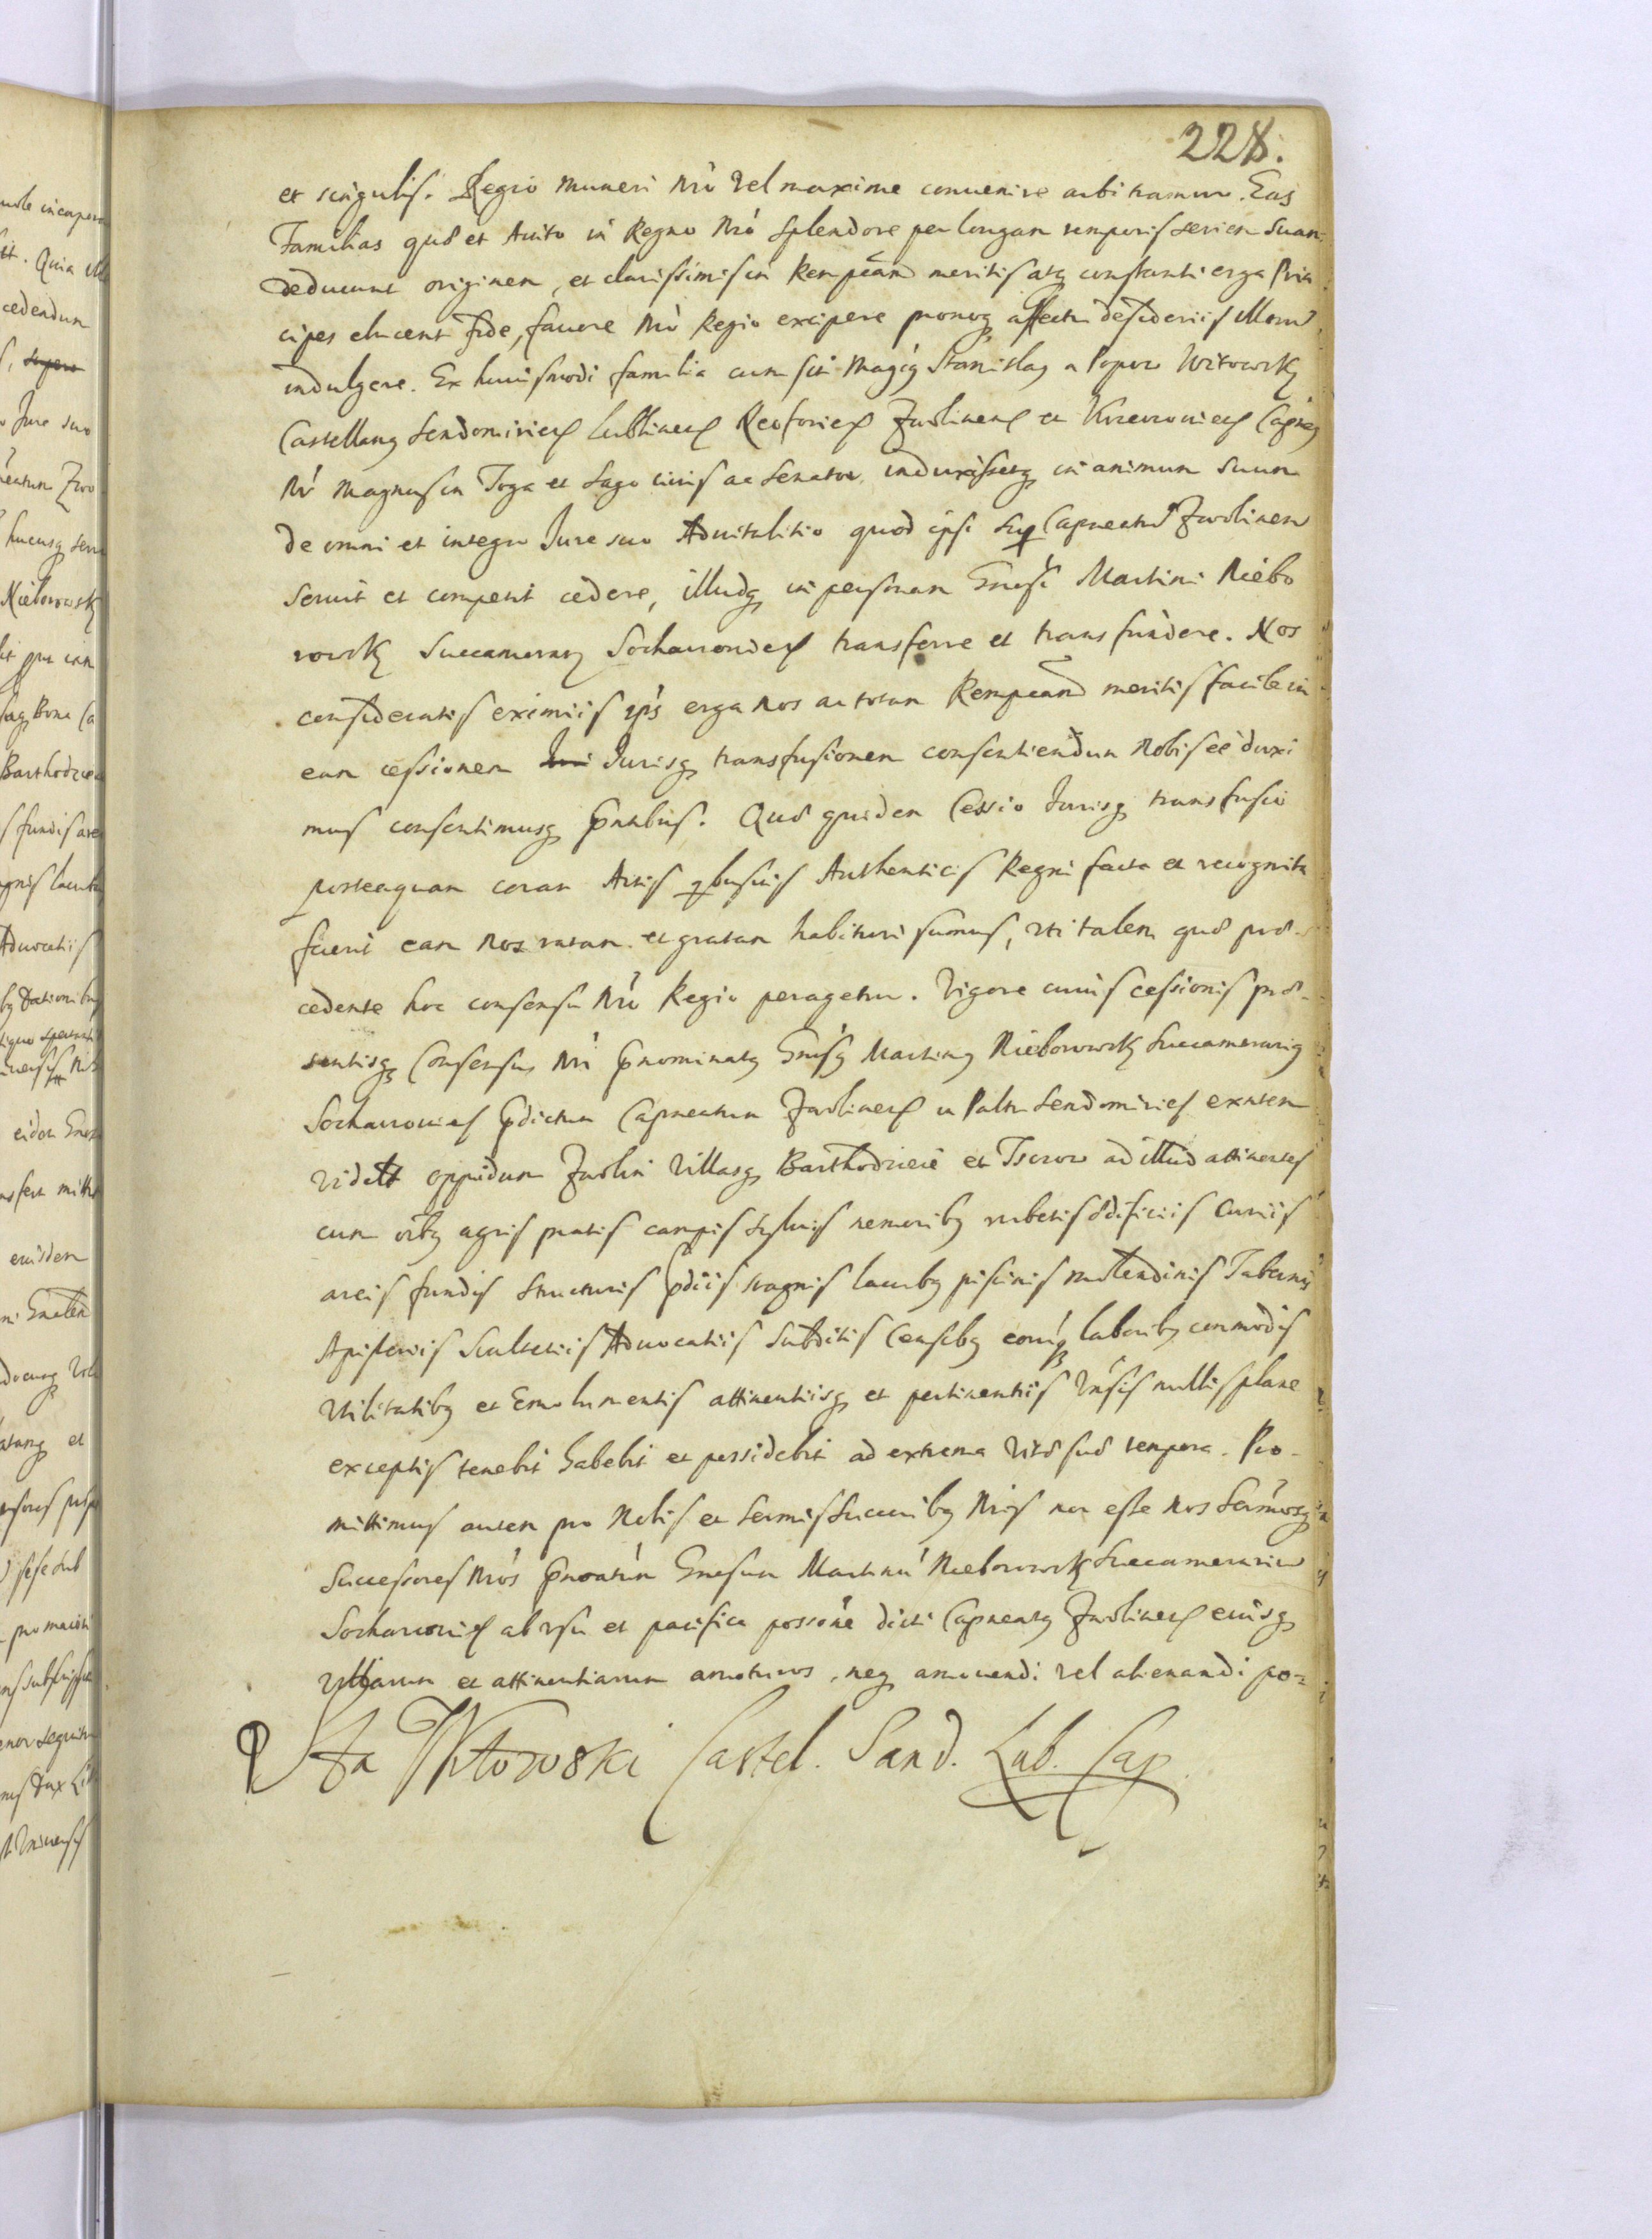 228.
et singulis. Regio muneri Nrô vel maxime convenire arbitramur. Eas
Familias quæ et Avito in Regno Nrô splendore per longam temporis seriem suam
deducunt originem, et clarissimis in Rempcam meritis atq constanti erga Prin
cipes elucent fide, favore Nrô Regio excipere pronoq affectu desideriis illorum
indulgere. Ex huiusmodi familia cum sit Magcus Stanislaus a Popow Witowsky
Castellanus Sendomirien Lublinen Zwolinen et Capneus
Nr Magnus in Toga et Sago civis ac Senator, induxissetq in animum suum
de omni et integro Jure suo Advitalitio quod ipsi sup Capneatu Zwolinen
servit et competit cedere, illudq in personam Gnosi Martini Niebo
rowsky Succamerary Sochaczovien transferre et transfundere. Nos
consideratis eximiis ips erga nos ac totam Rempcam meritis facile in
eam cessionem Jurisq transfusionem consentiendum nobis eê duxi
mus consentimusq pntibus. Quæ quidem Cessio Jurisq transfusio
posteaquam coram Actis Authenticis Regni facta et recognita
fuerit eam nos ratam et gratam habituri sumus, uti talem quæ præ-
cedente hoc consensu Nrô Regio peragetur. Vigore cuius cessionis præ-
sentisq Consensus Nri pnominatus Gnosus Martinus Nieborowsky Succamerarius
Sochaczovien pdictum Capneatum Zwolinen in Paltu Sendomirien exnten
videlt oppidum Zwolin Villasq Barthodzieie et Tczow ad illud attinentes
cum oibus agris pratis campis sylvis nemoribus rubetis ædificiis Curiis
areis fundis structuris pdiis stagnis lacubus piscinis molendinis Tabernis
Scultetiis Advocatiis subditis Censibus eorumq laboribus commodis
utilitatibus et Emolumentis attinentiisq et pertinentiis Vnsis nullis plane
exceptis tenebit habebit et possidebit ad extrema vitæ suæ tempora. Pro-
mittimus autem pro Nobis et Sermis Succribus Nris non esse nos Sermosq
Successores Nros pnoatum Gnosum Martinum Nieborowsky Succamerarium
Sochaczovien ab usu et pacifica possone dicti Capneatus Zwolinen eiusq
villarum et attinentiarum amoturos, neq amovendi vel alienandi po=
Sta Witowski Castel. Sand. Lub. Cap